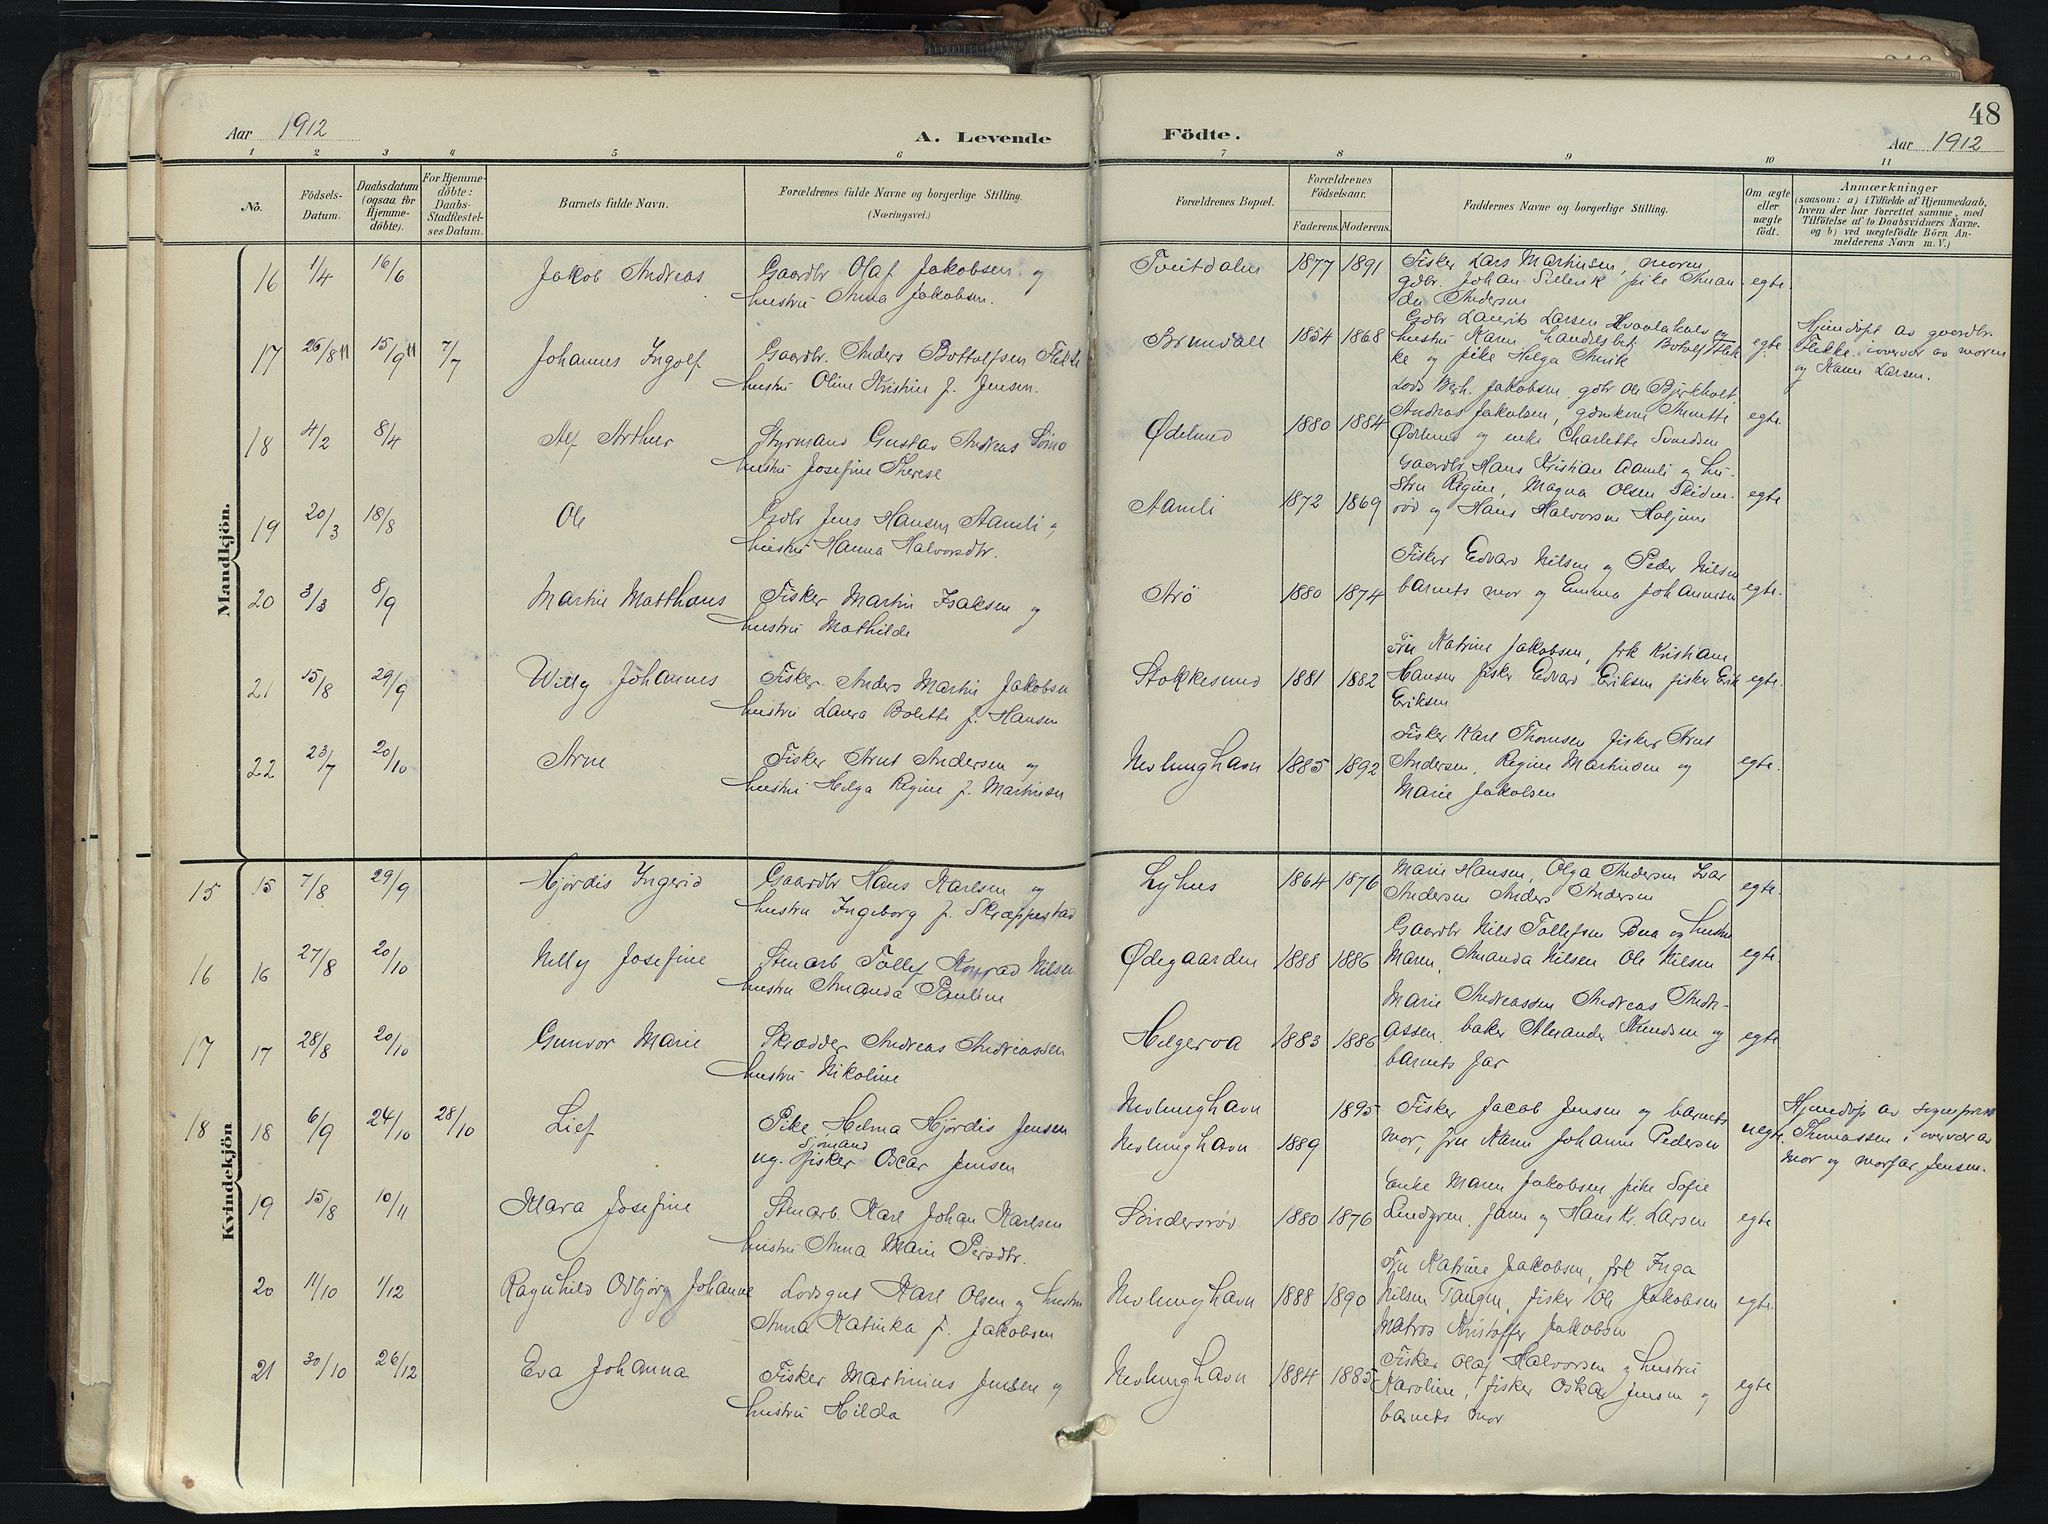 48
Aar 1912
A. Levende
Födte.
Aar 1912
1 2 3 4 5 6 7 8 9 10 11
No.
Födsels-
Datum.
Daabsdatum
(ogsaa for
Hjemme-
döbte).
For Hjemme-
döbte:
Daabs-
Stadfæstel-
ses Datum.
Barnets fulde Navn.
Forældrenes fulde Navne og borgerlige Stilling.
(Næringsvei.)
Forældrenes Bopæl.
Forældrenes
Födselsaar.
Faderens. Moderens.
Faddernes Navne og borgerlige Stilling.
Om ægte
eller
uægte
födt.
Anmærkninger
(saasom: a) i Tilfælde af Hjemmedaab,
hvem der har forrettet samme, med
Tilföielse af to Daabsvidners Navne.
og b) ved uægtefödte Börn An-
melderens Navn m. V.)
Mandkjön.
16 1/4 16/6 Jakob Andreas
Gaardbr Olaf Jakobsen og
hustru Anna Jakobsen.
Tveitdalen 1877 1891
Fisker Lars Martinsen, moren
gdbr. Johan pike Aman-
da Andersen
egte
17 26/8 11 15/9 11 7/7 Johannes Ingolf
Gaardbr. Anders Bottolfsen Flekke
hustru Oline Kristine f. Jensen.
Brunvall 1854 1868
Gdbr Laurits Larsen og
hustru Karen handelsbet Botolf Flek-
ke og pike Helga
egte
Hjemdøpt av gaardbr.
Flekke i overvær av moren
og Karen Larsen.
18 4/2 8/4 Alf Arthur
Styrmand Gustav Andreas
hustru Josefine Therese
Ødelund 1880 1884
Lods Jakobsen, gdbr Ole Bjerkholt
Andreas Jakobsen, Anette
Ødelund og enke Charlotte Svendsen
egte
19 20/3 18/8 Ole
Gdbr Jens Hansen Aamli og
hustru Hanna Halvorsdtr.
Aamli 1872 1869
Gaardbr Hans Kristian Aamli og hu-
stru Regine, Magna Olsen Skidn-
rød og Hans Halvorsen
egte
20 3/3 8/9 Martin Matthæus
Fisker Martin Isaksen og
hustru Mathilde
Arø 1880 1874
Fisker Edvard Nilsen og Peder Nilsen
barnets mor og Emma Johannesen
egte.
21 15/8 29/9 Willy Johannes
Fisker Anders Martin Jakobsen
hustru Laura Bolette f. Hansen
Stokkesund 1881 1882
Fru Katrine Jakobsen, frk Kristiane
Hansen fisker Edvard Eriksen fisker Erik
Eriksen
egte.
22 23/7 20/10 Arne
Fisker Arnt Andersen og
hustru Helga Regine f. Martinsen
Nevlunghavn 1885 1892
Fisker Karl Thomsen fisker Arnt
Andersen, Regine Martinsen og
Marie Jakobsen
egte.
Kvindekjön
15 15 7/8 29/9 Hjørdis Ingerid
Gaardbr Hans Karlsen og
hustru Ingeborg f. Skræppestad
Lyhus 1864 1876
Marie Hansen, Olga Andersen Ivar
Andersen Anders Andersen
egte.
16 16 27/8 20/10 Nelly Josefine
Stenarb Tollef Konrad Nilsen
hustru Amanda Pauline
Ødegaarden 1888 1886
Gaardbr Nils Tollefsen Bua og hustru
Maren, Amanda Nilsen Ole Nilsen
egte.
17 17 28/8 20/10 Gunvor Marie
Skrædder Andreas Andreassen
hustru Nikoline
Helgeroa 1883 1886
Marie Andreassen Andreas Andre-
assen, baker Alexander Knudsen og
barnets far
egte
18 18 6/9 24/10 28/10 Lief
Pike Helma Hjørdis Jensen
sjømand
ug. fisker Oscar Jensen
Nevlunghavn 1895
Nevlunghavn 1889
Fisker Jacob Jensen og barnets
mor, fru Karen Johanne Pedersen
uegte
Hjemdøp av sogneprest
Thomassen i overvær av
mor og morfar Jensen.
19 15/8 10/11 Mara Josefine
Stenarb. Karl Johan Karlsen
hustru Anna Marie Persdtr.
Søndersrød 1880 1876
Enke Maren Jakobsen, pike Sofie
Lindgren, faren og Hans Kr. Larsen
egte
20 11/10 1/12 Ragnhild Odbjørg Johanne
Lodsgut Karl Olsen og hustru
Anna Katinka f. Jakobsen
Nevlunghavn 1888 1890
Fru Katrine Jakobsen, frk Inga
Nilsen Tangen, fisker Ole Jakobsen
Matros Kristoffer Jakobsen
egte.
21 30/10 26/12 Eva Johanna
Fisker Martinius Jensen og
hustru Hilda
Nevlunghavn 1884 1885
Fisker Olaf Halvorsen og hustru
Karoline, fisker Oskar Jensen og
barnets mor
egte